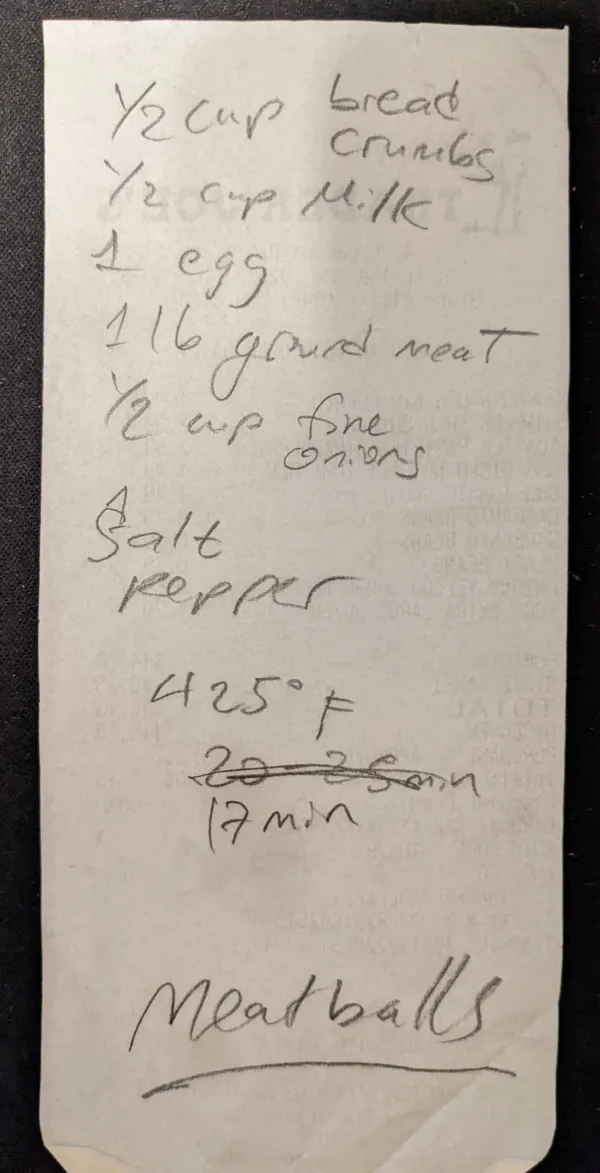 1/2 cup bread
crumbs
1/2 cup Milk
1 egg
1 lb ground meat
1/2 cup fine
onions
Salt
pepper
425° F
20-25 min
17 min
Meatballs